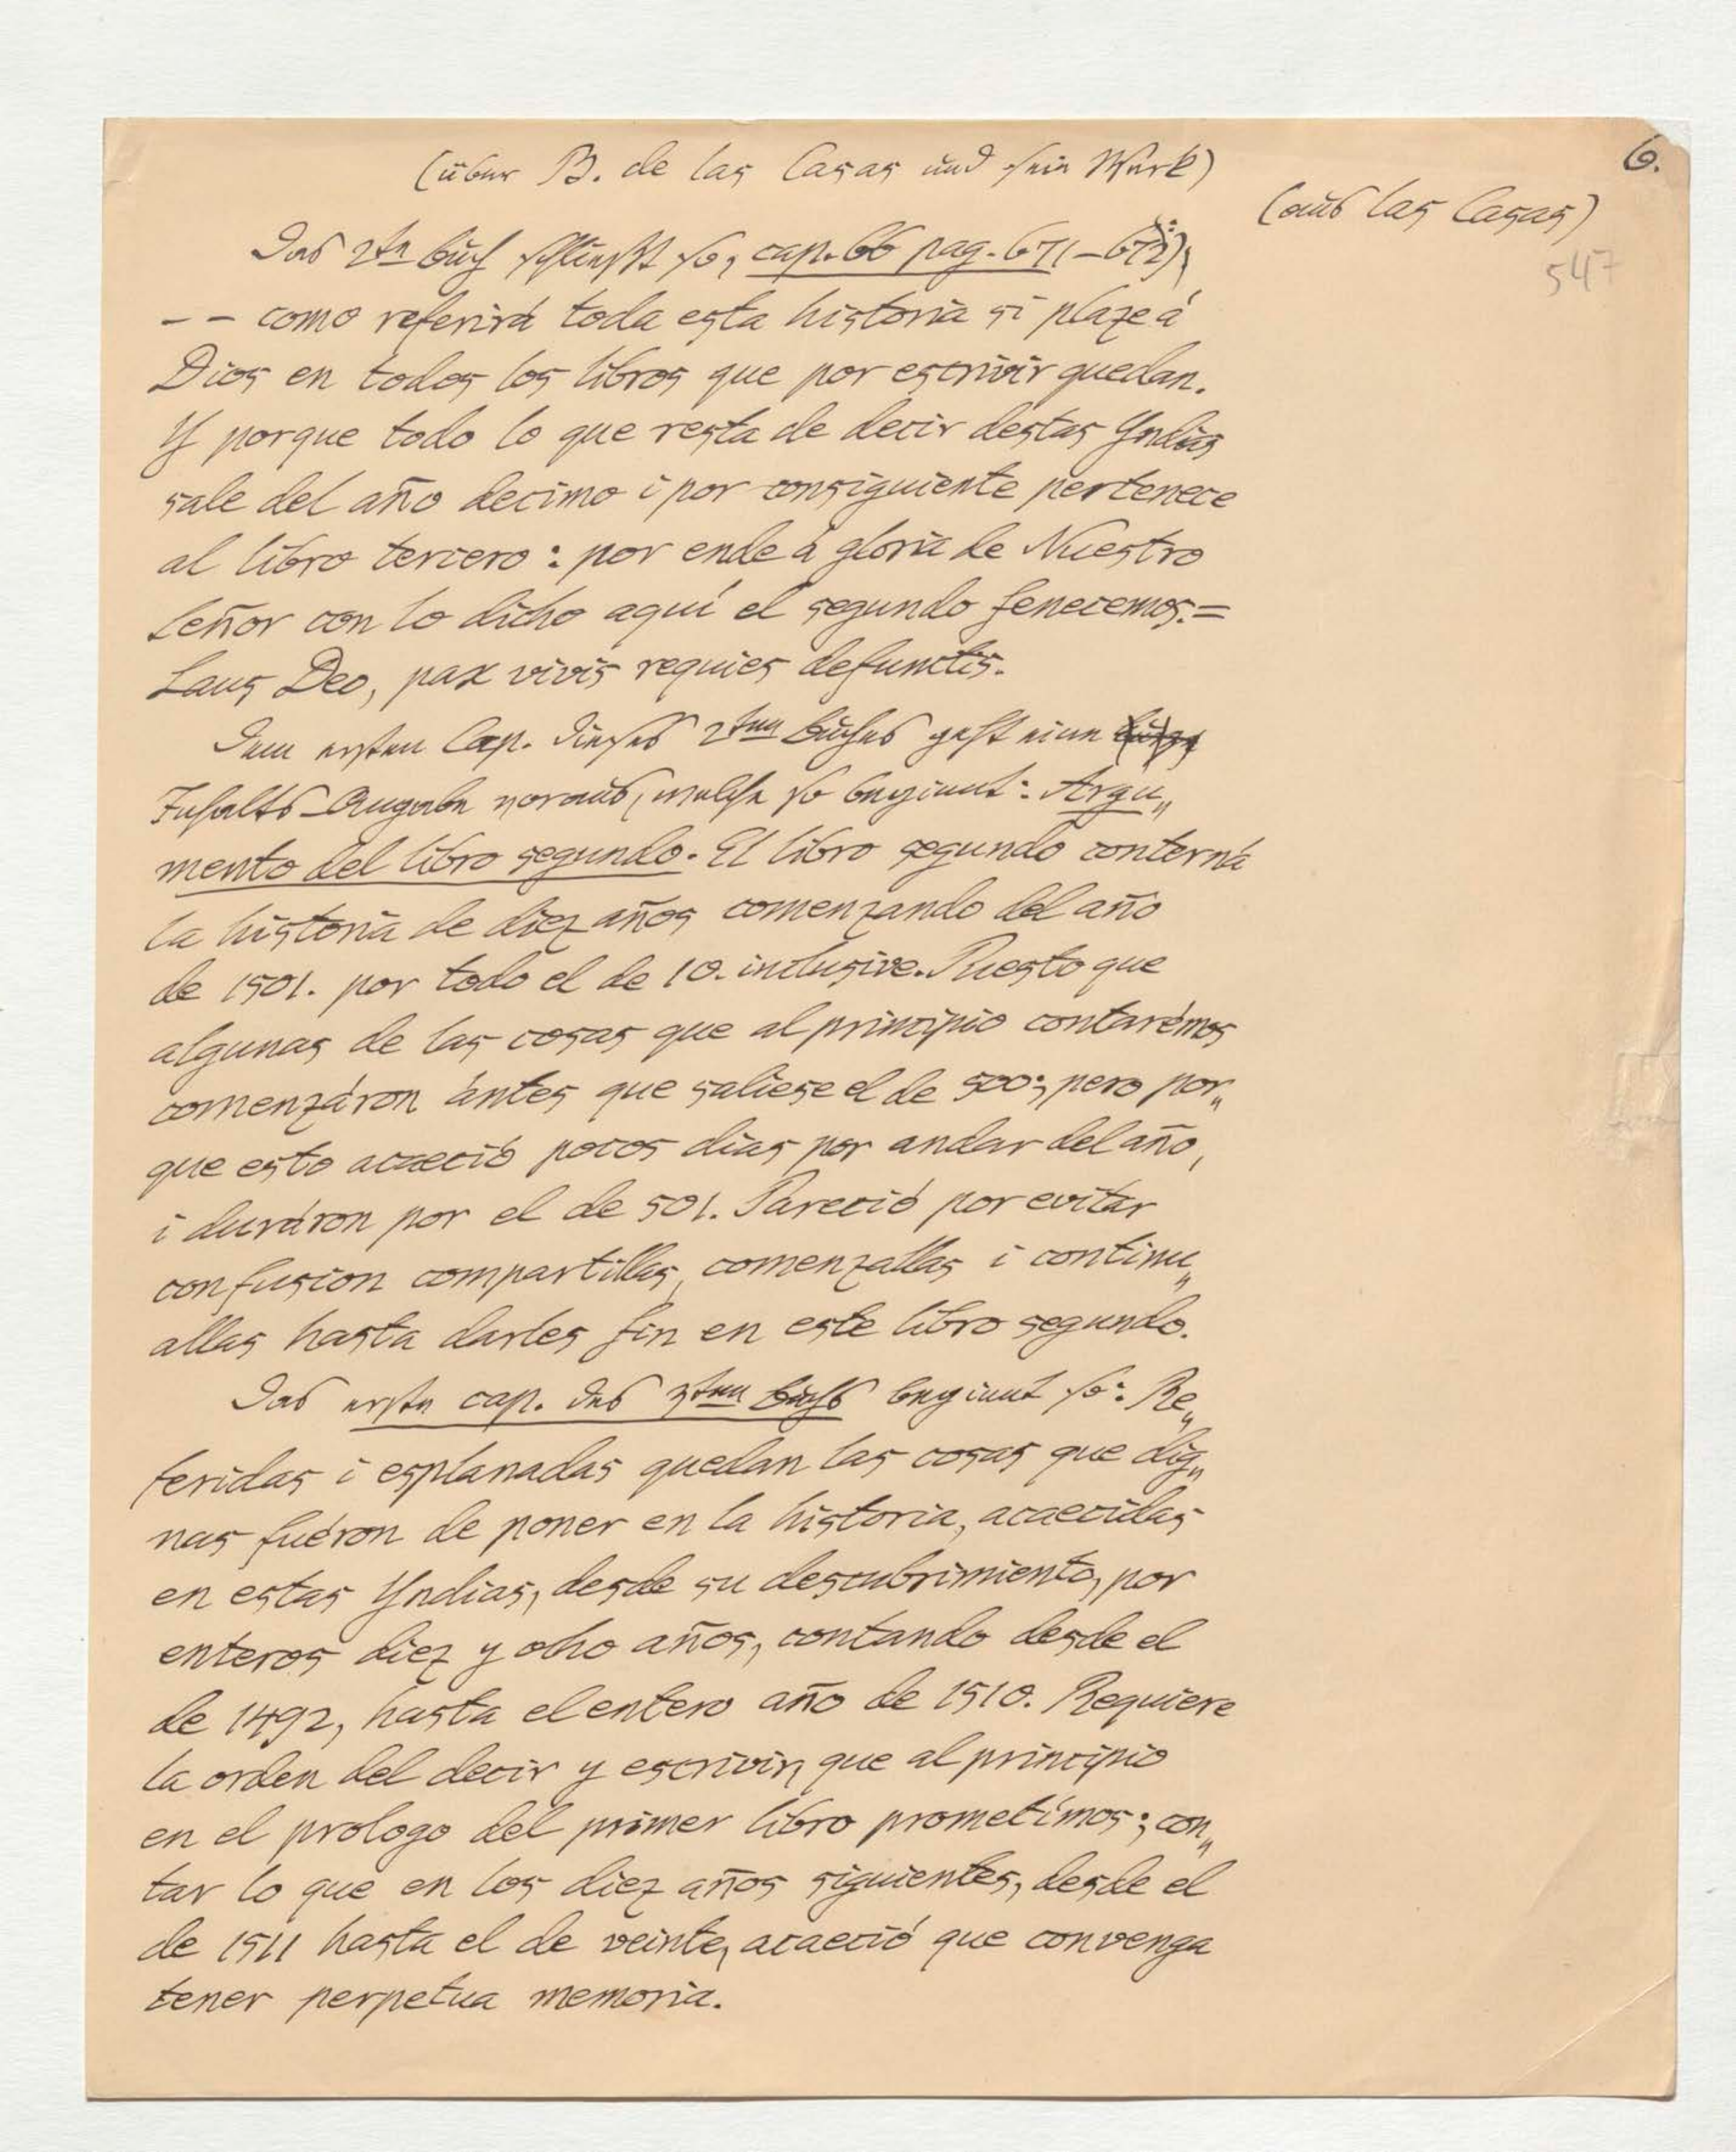 6.
(über B. de las Casas und sein Werk)
(aus las Casas)
547
Das 2te Buch schließt so, cap. 66 pag. 671–672):
-- como referirá toda esta historia si plaze á
Dios en todos los libros que por escrivir quedan.
Y porque todo lo que resta de decir destas Yndias
sale del año decimo i por consiguiente pertenece
al libro tercero: por ende á gloria de Nuestro
Señor con lo dicho aquí el segundo fenecemos. =
Laus Deo, pax vivis requies defunctis.
Dem ersten Cap. dieses 2ten Buches geht eine
Inhalts-Angabe voraus, welche so beginnt: Argu„
mento del libro segundo. El libro segundo conterná
la historia de diez años comenzando del año
de 1501. por todo el de 10. inclusive. Puesto que
algunas de las cosas que al principio contarémos
comenzáron ántes que saliese el de 500; pero por„
que esto acaeció pocos dias por andar del año,
i duráron por el de 501. Pareció por evitar
confusion compartillas, comenzallas i continu„
allas hasta darles fin en este libro segundo.
Das erste cap. des 3ten Buchs beginnt so: Re„
feridas i esplanadas quedan las cosas que dig„
nas fuéron de poner en la historia, acaecidas
en estas Yndias, desde su descubrimiento, por
enteros diez y ocho años, contando desde el
de 1492, hasta el entero año de 1510. Requiere
la orden del decir y escrivir, que al principio
en el prologo del primer libro prometímos; con„
tar lo que en los diez años siguientes, desde el
de 1511 hasta el de veinte, acaeció que convenga
tener perpetua memoria.